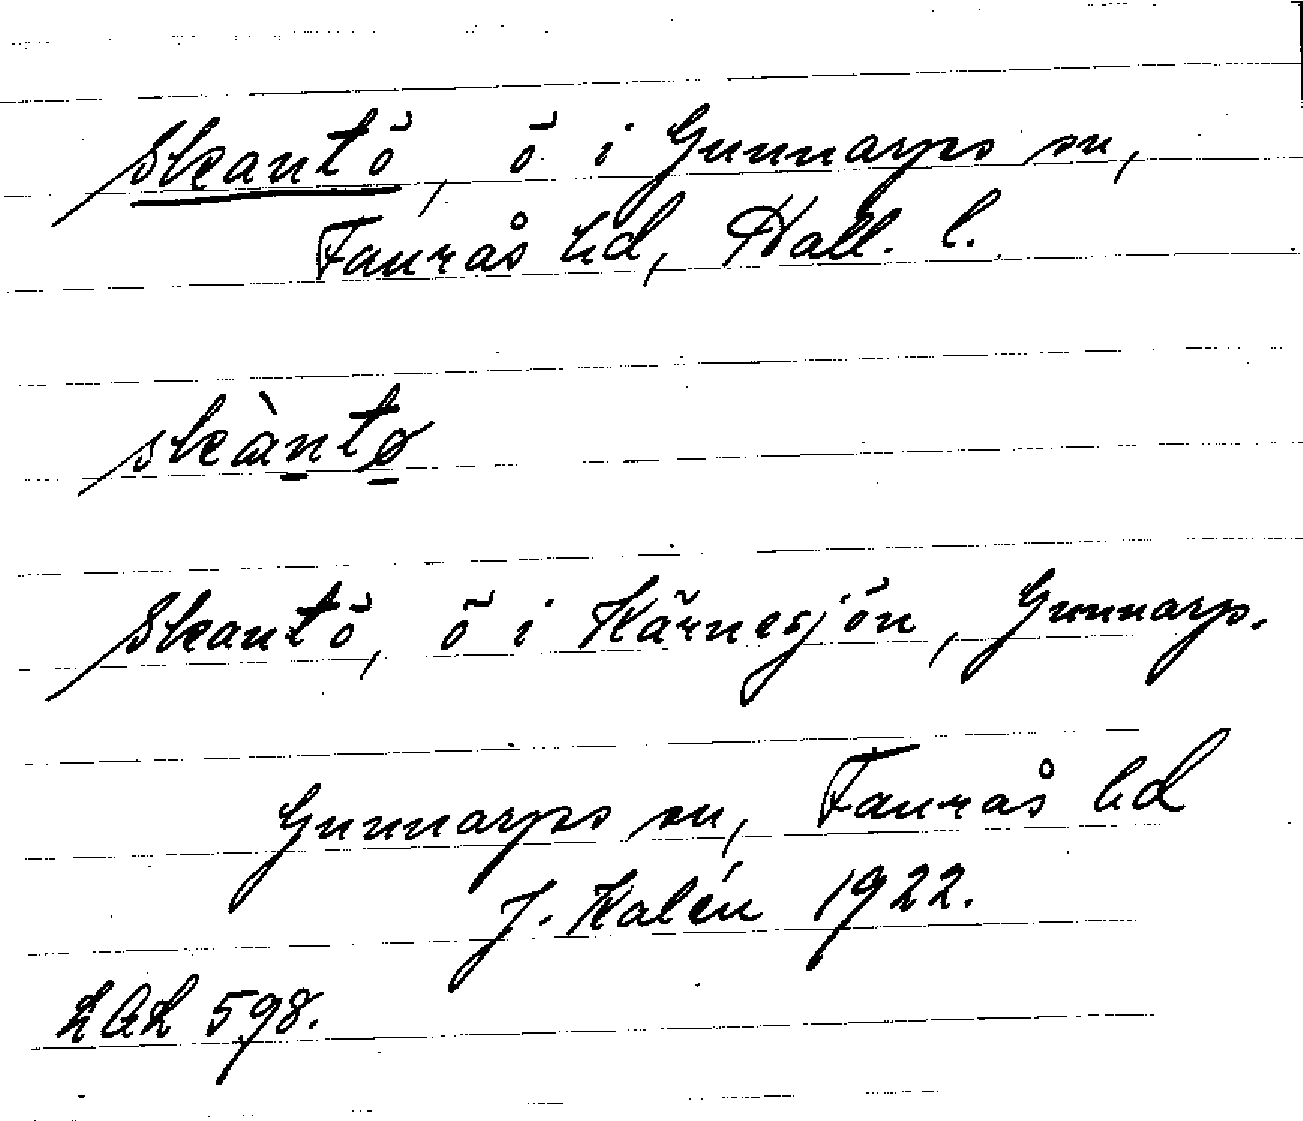 Skantö, ö i Gunnarps sn,
Faurås hd, Hall. l.
skàntø
Skantö, ö i Kärnesjön, Gunnarp.
Gunnarps sn, Faurås hd
J. Kalén 1922.
LAL 598.